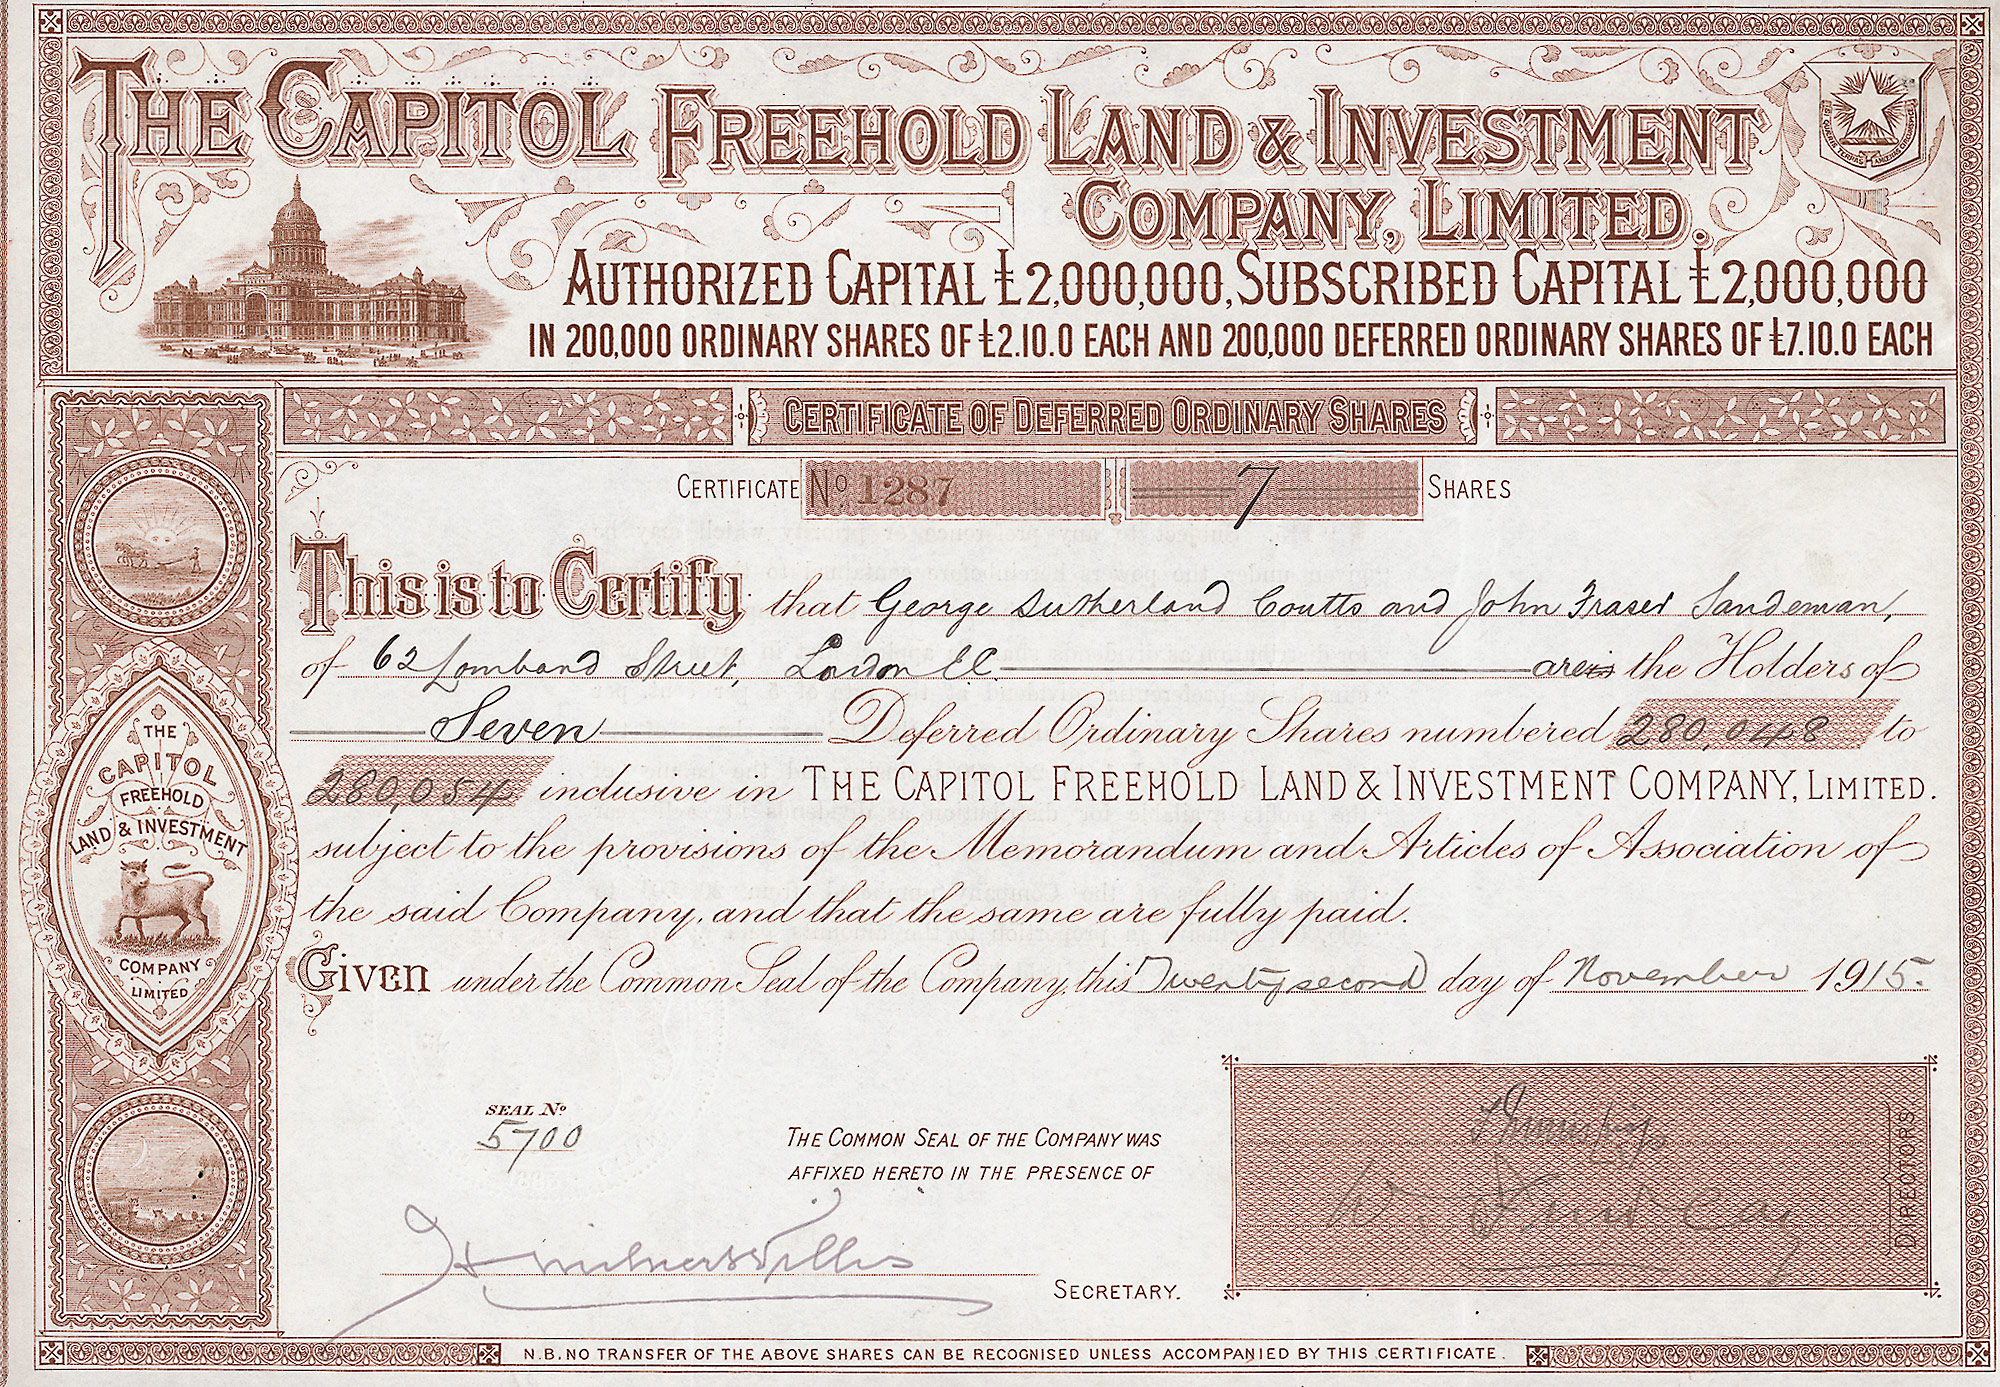 THE CAPITOL FREEHOLD LAND & INVESTMENT
COMPANY, LIMITED.
AUTHORIZED CAPITAL £2,000,000, SUBSCRIBED CAPITAL £2,000,000
IN 200,000 ORDINARY SHARES OF £2.10.0 EACH AND 200,000 DEFERRED ORDINARY SHARES OF £7.10.0 EACH
CERTIFICATE OF DEFERRED ORDINARY SHARES
CERTIFICATE No 1287 7 SHARES
This is to Certify that George Sutherland Coutts and John Fraser Sandeman,
of 62 Lombard Street, London E.C. are is the Holders of
Seven Deferred Ordinary Shares numbered 280,048 to
280,054 inclusive in THE CAPITOL FREEHOLD LAND & INVESTMENT COMPANY, LIMITED.
subject to the provisions of the Memorandum and Articles of Association of
the said Company, and that the same are fully paid.
Given under the Common Seal of the Company, this Twenty second day of November 1915.
THE
CAPITOL
FREEHOLD
LAND & INVESTMENT
COMPANY
LIMITED
SEAL No
5700
THE COMMON SEAL OF THE COMPANY WAS
AFFIXED HERETO IN THE PRESENCE OF
DIRECTORS
SECRETARY.
N.B. NO TRANSFER OF THE ABOVE SHARES CAN BE RECOGNISED UNLESS ACCOMPANIED BY THIS CERTIFICATE.